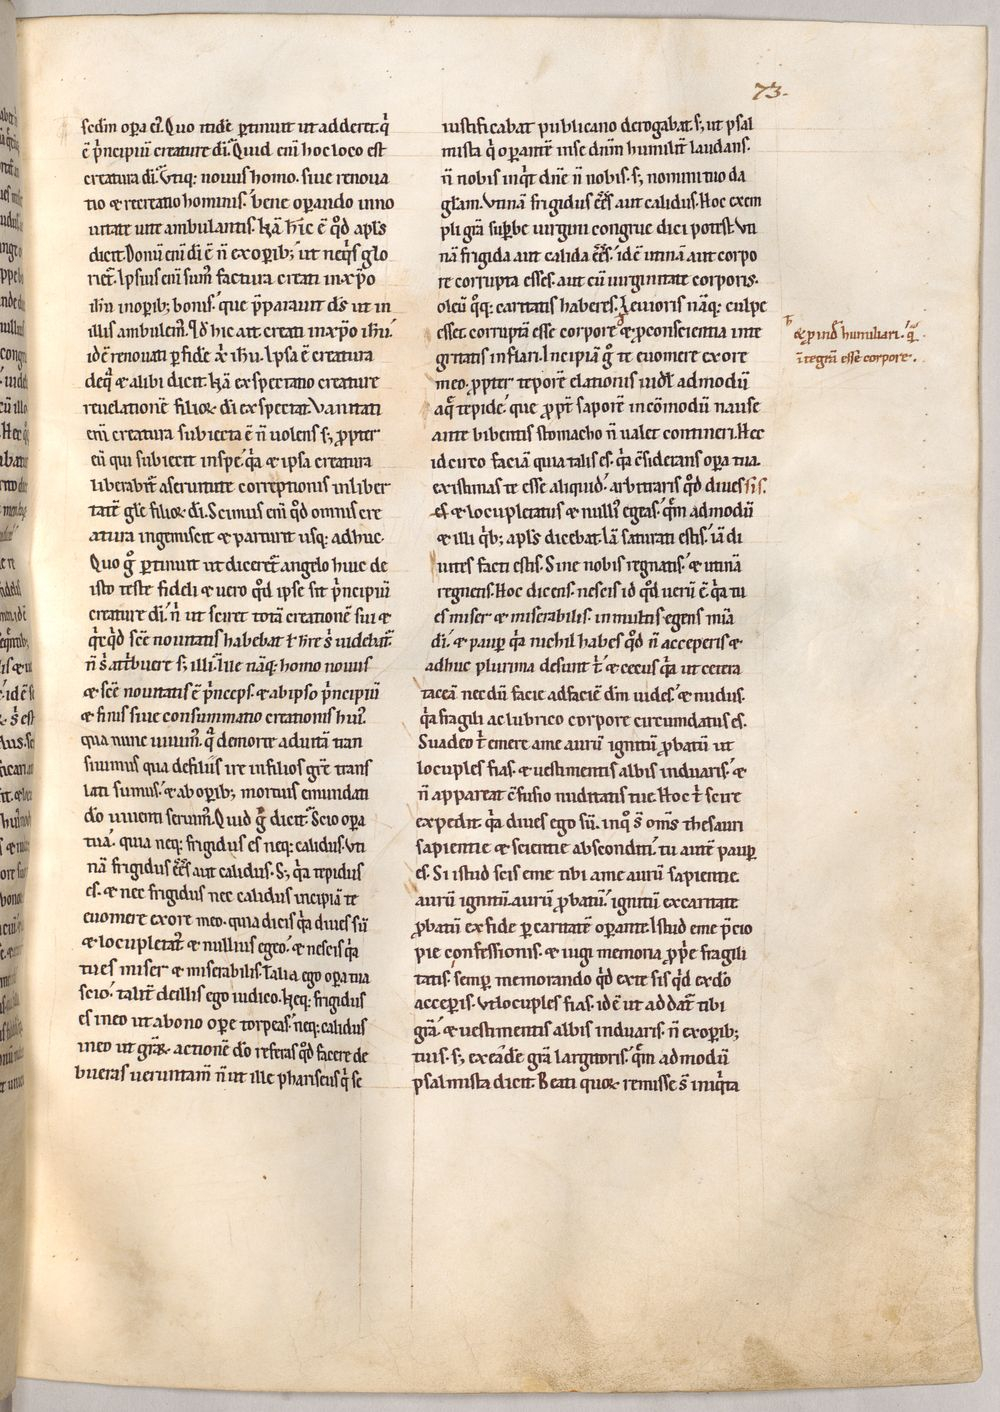 73.
sedm̄ oꝑa ei᷒. Quo itide᷑ ꝑtinuit ut adderet. q᷑
ē p᷑ncipiū creature di᷑. Quid eni᷑ hoc loco est
creatura di᷑. Utiq; nouus homo. siue renoua
tio ⁊ recreatio hominis. bene oꝑando inno
uitate uite ambulantis. Hā hī̄c ē qd̄ apl̄s
dicit. Donū eni᷑ di᷑ ē n̄ ex oꝑib; ut neq᷑s glo
riet᷑. Ipsius eni᷑ sum᷒ factura creati in xp̄o
ih̄u in oꝑib; bonis. que p̄parauit ds̄ ut in
illis ambulem᷒. Qd̄ hic ait creati in xp̄o ih̄u.
idē renouati ꝑ fide᷑ xp̄i ih̄u. Ipsa ē creatura
de q᷑ ⁊ alibi dicit. Hā exspectatio creature
reuelationē filioꝝ di᷑ exspectat. Vanitati
eni᷑ creatura subiecta ē n̄ uolens s; ꝓpter
eū qui subiecit in spe. q᷑a ⁊ ipsa creatura
liberabit᷑ a seruitute correptionis in liber
tatē gl̄e filioꝝ di᷑. Scimus eni᷑ qd̄ omnis cre
atura ingemiscit ⁊ parturit usq; adhuc.
Quo ḡ ꝑtinuit ut diceret᷑ angelo huic de
isto teste fideli ⁊ uero qd̄ ipse sit p᷑ncipiū
creature di᷑. n᷑ ut sciret totā creationē sui ⁊
q᷑cqd̄ sc̄e nouitatis habebat ł hr̄e s᷑ uidebat᷑.
n̄ s᷑ at᷑buere s; illi. Ille nāq; homo nouus
⁊ sc̄e nouitatis ē p᷑nceps. ⁊ ab ipso p᷑ncipiū
⁊ finis siue consummatio creationis hui᷒.
qua nunc uiuim᷒. q᷑ de morte ad uitā tran
siuimus qua de filiis ire in filios gr̄e trans
lati sumus. ⁊ ab oꝑib; mortuis emundati
do᷑ uiuenti seruim᷒. Quid ḡ dicit. Scio oꝑa
tua. quia neq; frigidus es neq; calidus. Uti
nā frigidus ee᷑s aut calidus. S; q᷑a tepidus
es. ⁊ nec frigidus nec calidus incipiā te
euomere ex ore meo. quia dicis q᷑a diues sū
⁊ locupletat᷒ ⁊ nullius egeo. ⁊ nescis q᷑a
tu es miser ⁊ miserabilis. Talia ego oꝑa tua
scio. talit᷑ de illis ego iudico. Neq; frigidus
es in eo ut a bono oꝑe torpeas. neq; calidus
in eo ut grāꝝ actionē do᷑ referas qd̄ facere de
bueras ueruntam̄ n̄ ut ille phariseus q᷑ se
iustificabat publicano derogabat. s; ut psal
mista q᷑ oꝑantē in se dn̄m humilit᷑ laudans.
n̄ nobis inq᷑t dn̄e n̄ nobis. s; nomini tuo da
gl̄am. Utinā frigidus ee᷑s aut calidus. Hoc exem
pli gr̄a suꝑbe uirgini congrue dici potest. Uti
nā frigida aut calida ee᷑s. idē utinā aut corpo
re corrupta esses. aut cū uirginitate corporis.
oleū q̄q; caritatis haberes. Leuioris nāq; culpe
esset corruptā esse corpore ⁊ ꝓ conscientia inte
gritatis inflari. Incipiā ḡ te euomere ex ore
meo. ꝓpter teporē elationis uidl̄ admodū
aq᷑ tepide. que ꝓpt᷑ saporē incōmodū nause
ante bibentis stomacho n̄ ualet contineri. Hec
idcirco faciā quia talis es. q᷑a c̄siderans oꝑa tua.
existimas te esse aliquid. arbitraris qd̄ diues sis.
es ⁊ locupletatus ⁊ null᷒ egeas. q̄m admodū
⁊ illi q᷑b; apl̄s dicebat. Iā saturati estis. iā di
uites facti estis. Sine nobis regnatis. ⁊ utinā
regnetis. Hoc dicens. nescis id qd̄ uerū ē q᷑a tu
es miser ⁊ miserabilis. in multis egens mi᷑a
di᷑. ⁊ pauꝑ q᷑a nichil habes qd̄ n̄ acceperis ⁊
adhuc plurima desunt t᷑. ⁊ cecus q᷑a ut cetera
taceā necdū facie ad faciē dm̄ uides. ⁊ nudus.
q᷑a fragili ac lubrico corpore circumdatus es.
Suadeo t᷑ emere a me aurū ignitū ꝓbatū ut
locuples fias. ⁊ uestimentis albis induaris. ⁊
n̄ appareat c̄fusio nuditatis tue. Hoc t᷑ scire
expedit. q᷑a diues ego sū. in q᷒ s̄ om̄s thesauri
sapientie ⁊ scientie absconditi. tu autē pauꝑ
es. Si istud scis eme tibi a me aurū sapientie.
aurū ignitū. aurū ꝓbatū. ignitū ex caritate
ꝓbatū ex fide ꝑ caritatē oꝑante. Istud eme p̄cio
pie confessionis. ⁊ iugi memoria ꝓp᷑e fragili
tatis. semꝑ memorando qd̄ ex te sis qd̄ ex do᷑
acceꝑis. Ut locuples fias. idē ut addat᷑ tibi
gr̄a. ⁊ uestimentis albis induaris. n̄ ex oꝑib;
tuis. s; ex eādē gr̄a largitoris. q̄m admodū
psalmista dicit. Beati quoꝝ remisse s̄ iniq᷑ta
⁊ ꝓ ind᷒ humiliari. q᷑
ītegrā esse corpore.